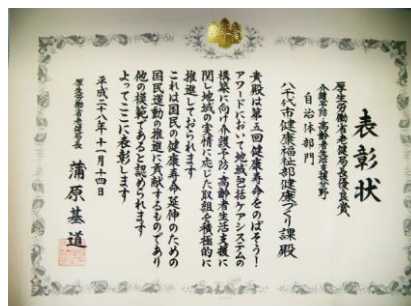 表彰状
厚生労働省老健局長優良賞
介護予防・高齢者生活支援分野
自治体部門
八千代市健康福祉部健康づくり課殿
貴殿は第五回健康寿命をのばそう！
アワードにおいて地域包括ケアシステムの
構築に向け介護予防・高齢者生活支援に
関し地域の実情に応じた取組を積極的に
推進しておられます
これは国民の健康寿命延伸のための
国民運動の推進に貢献するものであり
他の模範であると認められます
よってここに表彰します
平成二八年十一月十四日
厚生労働省老健局長 蒲原基道